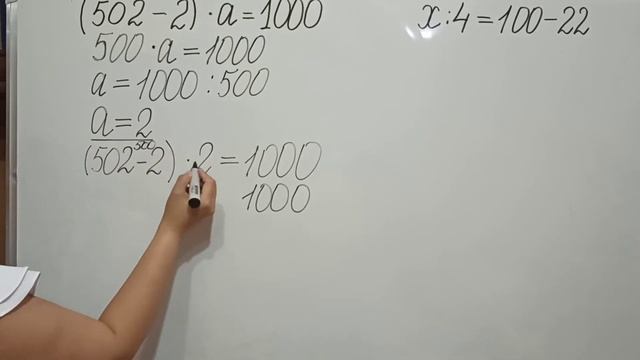 (502-2)·a=1000
500·a=1000
a=1000:500
a=2
500
(502-2)·2=1000
1000
x:4=100-22